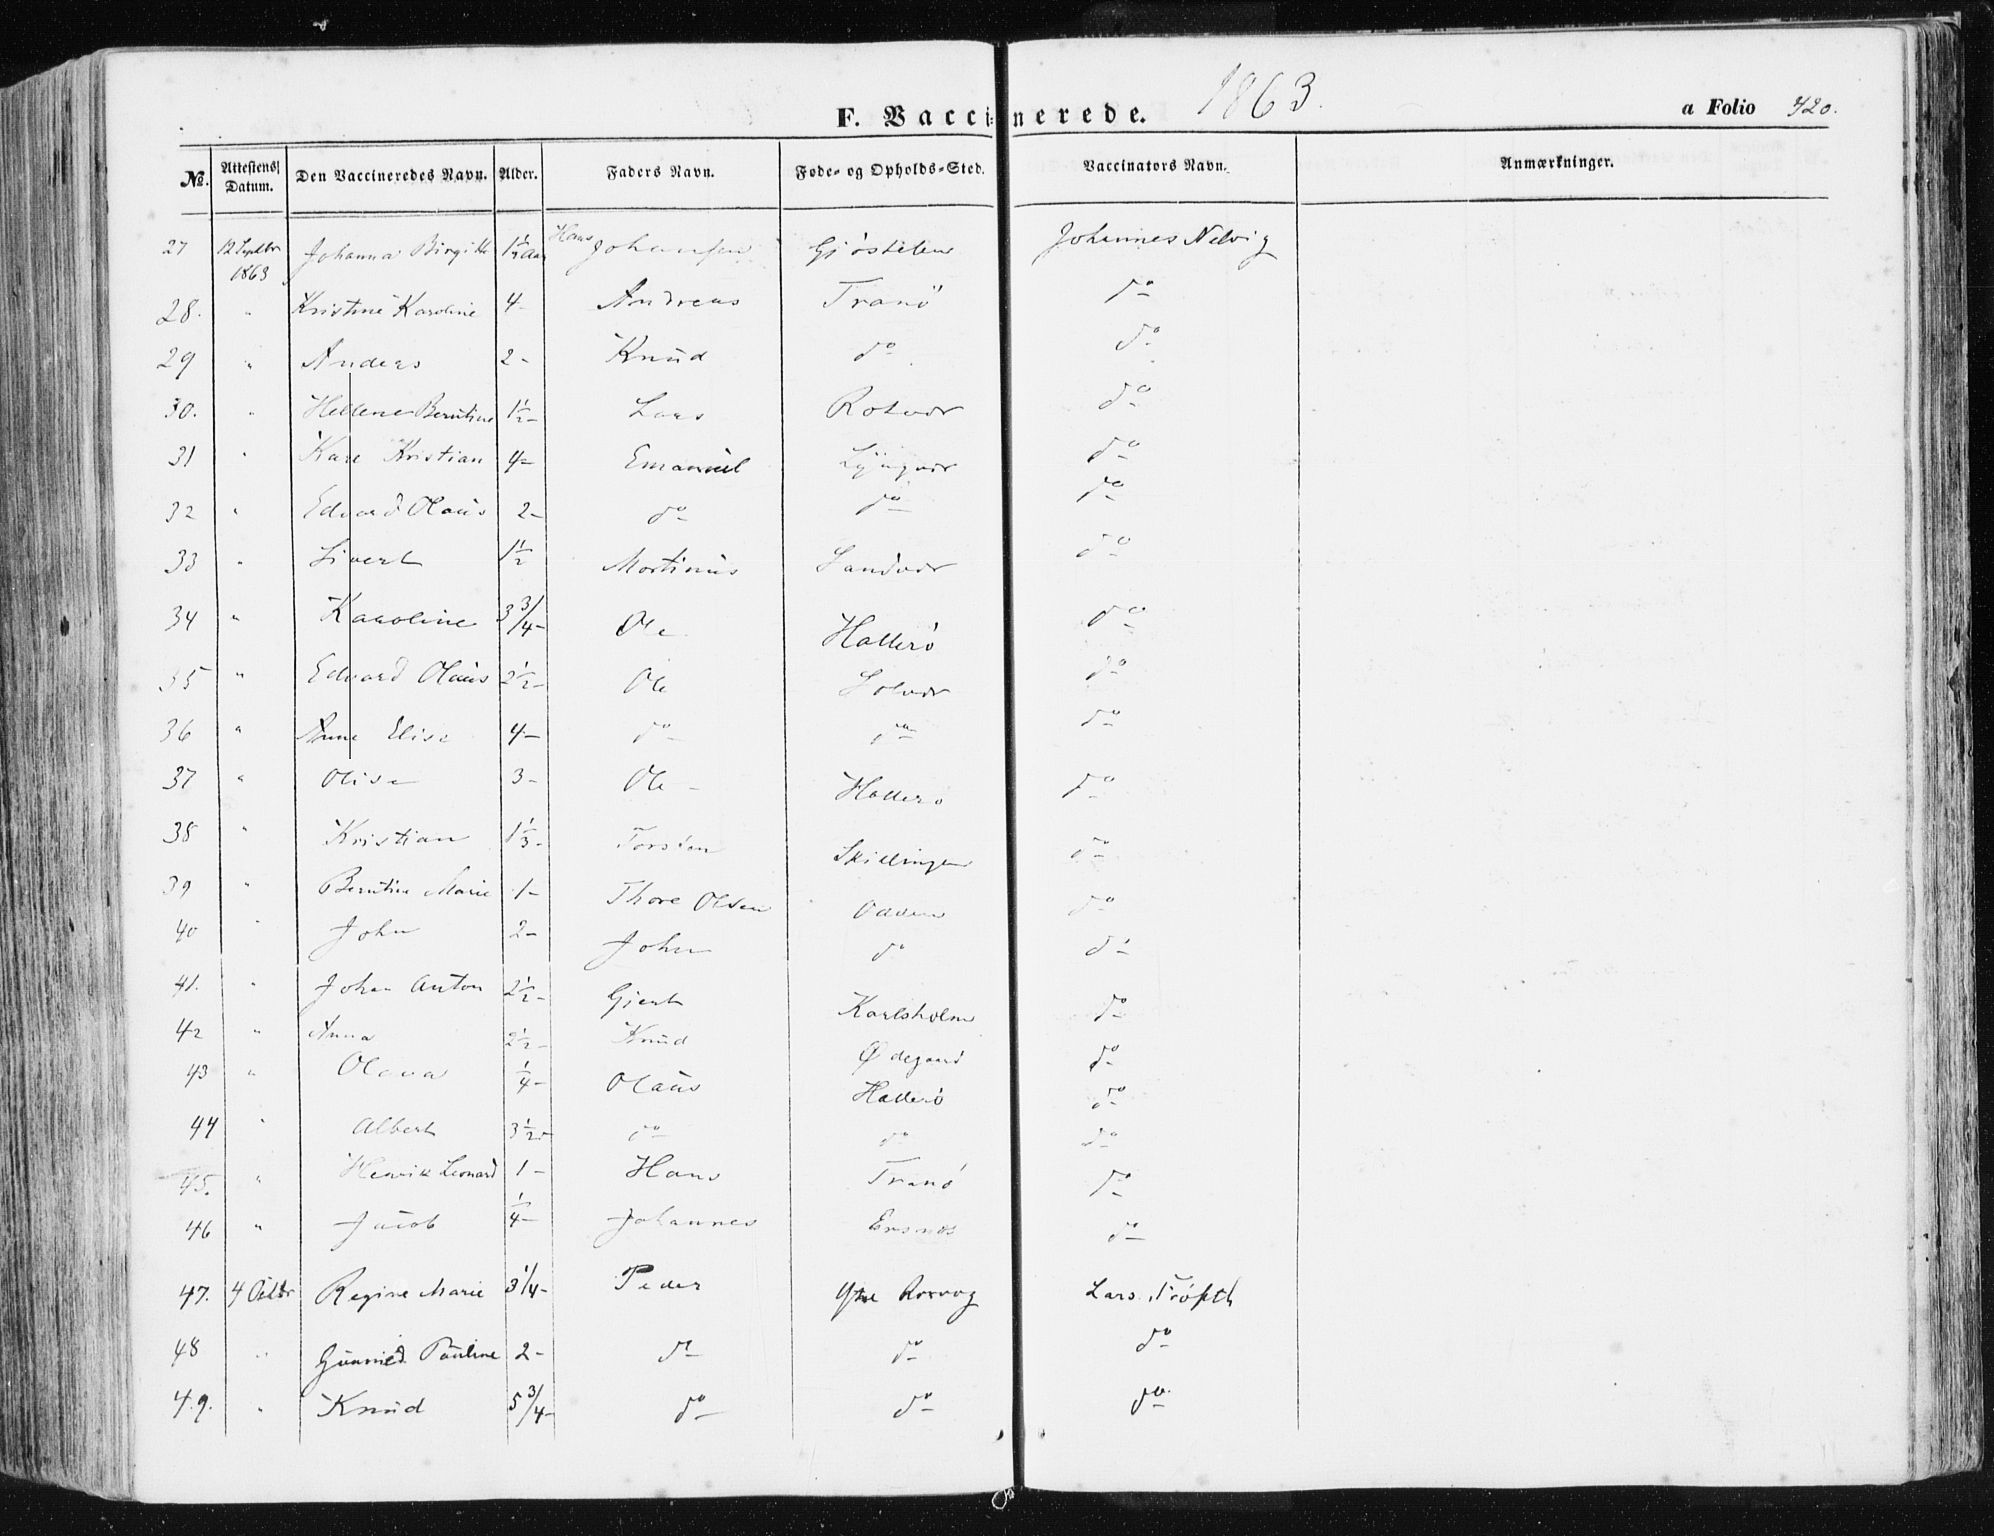 F. Vaccinerede. 1863.
a Folio 420.
№. Attestens Datum. Den Vaccineredes Navn. Alder. Faders Navn. Føde- og Opholds-Sted. Vaccinators Navn. Anmærkninger.
27 12 Septbr 1863 Johanna Birgitte 1½ Aar Hans Johansen Johannes Nelvig
28. " Kristine Karoline 4- Andreas Tranö do
29 " Anders 2- Knud do do
30. " Hellene Berntine 1½- Lars Rotvær do
31 " Karl Kristian 4- Emanuel Lyngvær do
32 " Edvard Olaus 2- do do do
33 " Sivert 1½ Martinus Sandvær do
34 " Karoline 3 3/4- Ole Hallerö do
35 " Edvard Olaus 2½- Ole Solvær do
36 " Anne Elise 4- do do do
37 " Olise 3- Ole Hallerö do
38 " Kristian 1⅓- Torsten Skillingen do
39 " Berntine Marie 1- Thore Olsen Odden do
40 " John 2- John do do
41. " Johan Anton 2½- Gjert Karlsholm do
42 " Anna 2½- Knud Ødegaard do
43 " Olava ¼- Olaus Hallerö do
44 " Albert 3½- do do do
45. " Henrik Leonard 1- Hans Tranö do
46 " Jacob ¼- Johannes Ersnes do
47. 4 Octbr Regine Marie 3¼- Peder Ytre Korsvog Lars
48 " Gunnild Pauline 2- do do do
49. " Knud 5 3/4- do do do